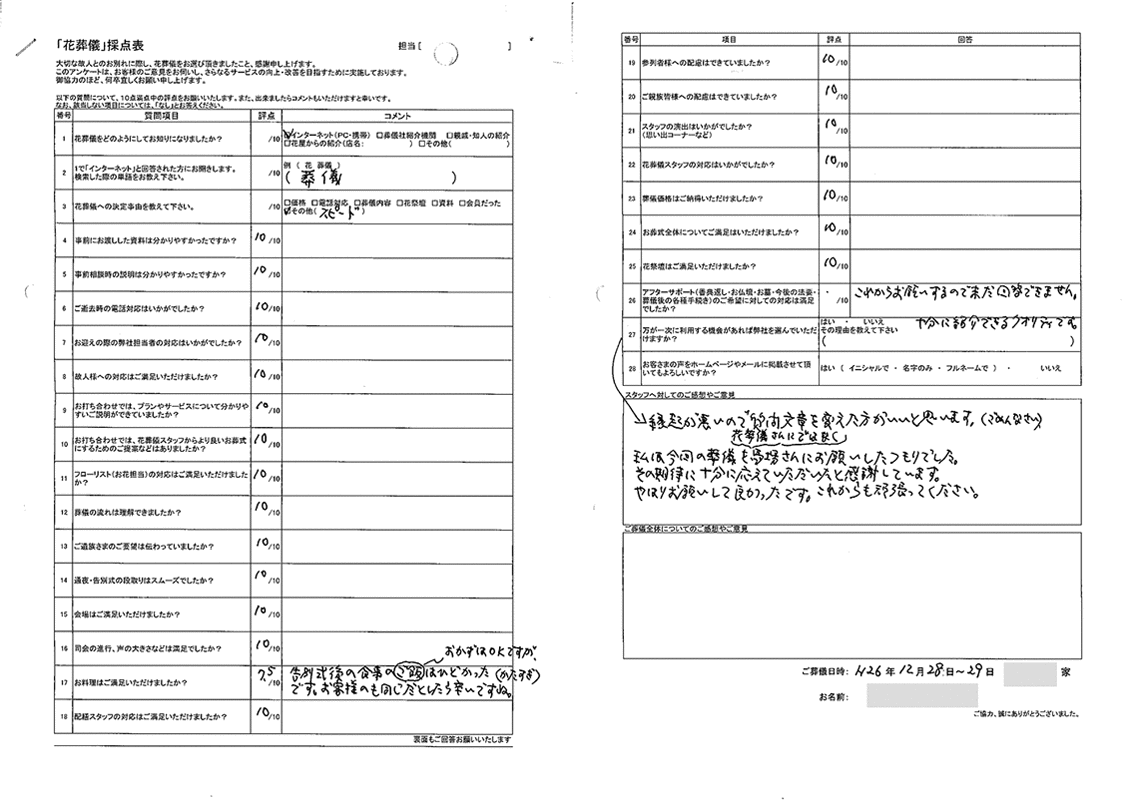 「花葬儀」採点表
担当[　　　]
大切な故人とのお別れに際し、花葬儀をお選び頂きましたこと、感謝申し上げます。
このアンケートは、お客様のご意見をお伺いし、さらなるサービスの向上・改善を目指すために実施しております。
御協力のほど、何卒宜しくお願い申し上げます。
以下の質問について、10点満点中の評点をお願いします。また、出来ましたらコメントもいただけますと幸いです。
なお、該当しない項目については、「なし」とお答えください。
番号 質問項目 評点 コメント
1 花葬儀をどのようにしてお知りになりましたか？ /10 ☑インターネット(PC・携帯) □葬儀社紹介機関 □親戚・知人の紹介
□花屋からの紹介(店名: ) □その他( )
2 1で「インターネット」と回答された方にお聞きします。
検索した際の単語をお教え下さい。 /10 例（ 花 葬儀 ）
( 葬儀 )
3 花葬儀への決定事由を教えて下さい。 /10 □価格 □電話対応 □葬儀内容 □花祭壇 □資料 □会員だった
☑その他( スピード )
4 事前にお渡しした資料は分かりやすかったですか？ 10/10
5 事前相談時の説明は分かりやすかったですか？ 10/10
6 ご逝去時の電話対応はいかがでしたか？ 10/10
7 お迎えの際の弊社担当者の対応はいかがでしたか？ 10/10
8 故人様への対応はご満足いただけましたか？ 10/10
9 お打ち合わせでは、プランやサービスについて分かりや
すいご説明ができていましたか？ 10/10
10 お打ち合わせでは、花葬儀スタッフからより良いお葬式
にするためのご提案などはありましたか？ 10/10
11 フローリスト(お花担当)の対応はご満足いただけました
か？ 10/10
12 葬儀の流れは理解できましたか？ 10/10
13 ご遺族さまのご要望は伝わっていましたか？ 10/10
14 通夜・告別式の段取りはスムーズでしたか？ 10/10
15 会場はご満足いただけましたか？ 10/10
16 司会の進行、声の大きさなどは満足でしたか？ 10/10
おかずはOKですが、
17 お料理はご満足いただけましたか？ 7.5/10 告別式後の食事のご飯はひどかった(かたすぎ)
です。お客様のも同じだとしたら辛いですね。
18 配膳スタッフの対応はご満足いただけましたか？ 10/10
裏面もご回答お願いいたします
番号 項目 評点 回答
19 参列者様への配慮はできていましたか？ 10/10
20 ご親族皆様への配慮はできていましたか？ 10/10
21 スタッフの演出はいかがでしたか？
(思い出コーナーなど) 10/10
22 花葬儀スタッフの対応はいかがでしたか？ 10/10
23 葬儀価格はご納得いただけましたか？ 10/10
24 お葬式全体についてご満足はいただけましたか？ 10/10
25 花祭壇はご満足いただけましたか？ 10/10
26 アフターサポート(香典返し・お仏壇・お墓・今後の法要・
葬儀後の各種手続き)のご希望に対しての対応は満足
でしたか？ /10 これからお願いするので未だ回答できません。
27 万が一次に利用する機会があれば弊社を選んでいただ
けますか？ はい ・ いいえ 十分に紹介できるクオリティです。
その理由を教えて下さい
( )
28 お客さまの声をホームページやメールに掲載させて頂
いてもよろしいですか？ はい ( イニシャルで ・ 名字のみ ・ フルネームで ) ・ いいえ
スタッフへ対してのご感想やご意見
縁起が悪いので質問文章を変えた方がいいと思います。(ごめんなさい)
花葬儀さんにではなく
私は今回の葬儀を馬場さんにお願いしたつもりでした。
その期待に十分に応えていただいたと感謝しています。
やはりお願いして良かったです。これからも頑張ってください。
ご葬儀全体についてのご感想やご意見
ご葬儀日時： H26 年 12 月 28 日～ 29 日 家
お名前：
ご協力、誠にありがとうございました。